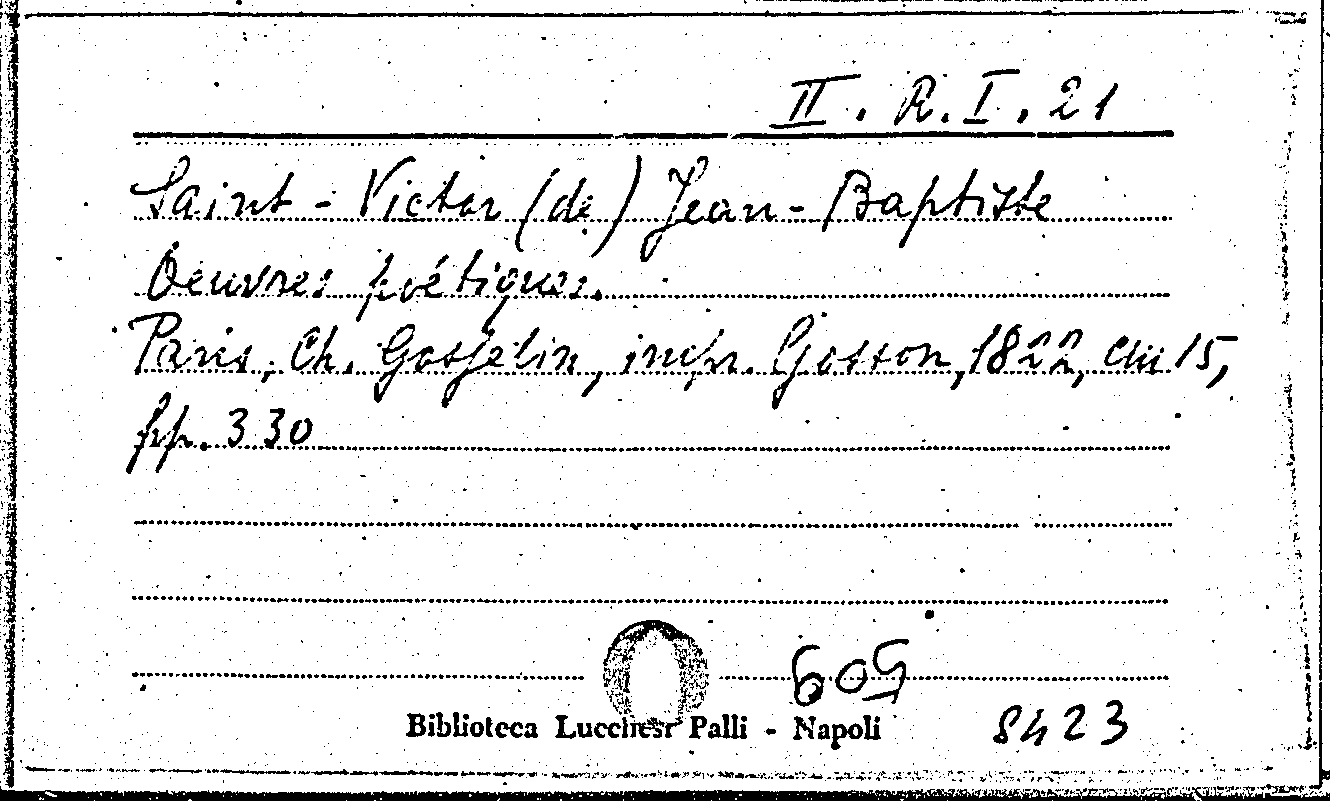 II. R. I. 21
Saint-Victor (de) Jean-Baptiste
Oeuvres poétiques.
Paris, Ch. Gosselin, impr. Gosson, 1822, cm 15,
pp. 330
605
Biblioteca Lucchesi Palli - Napoli
8423